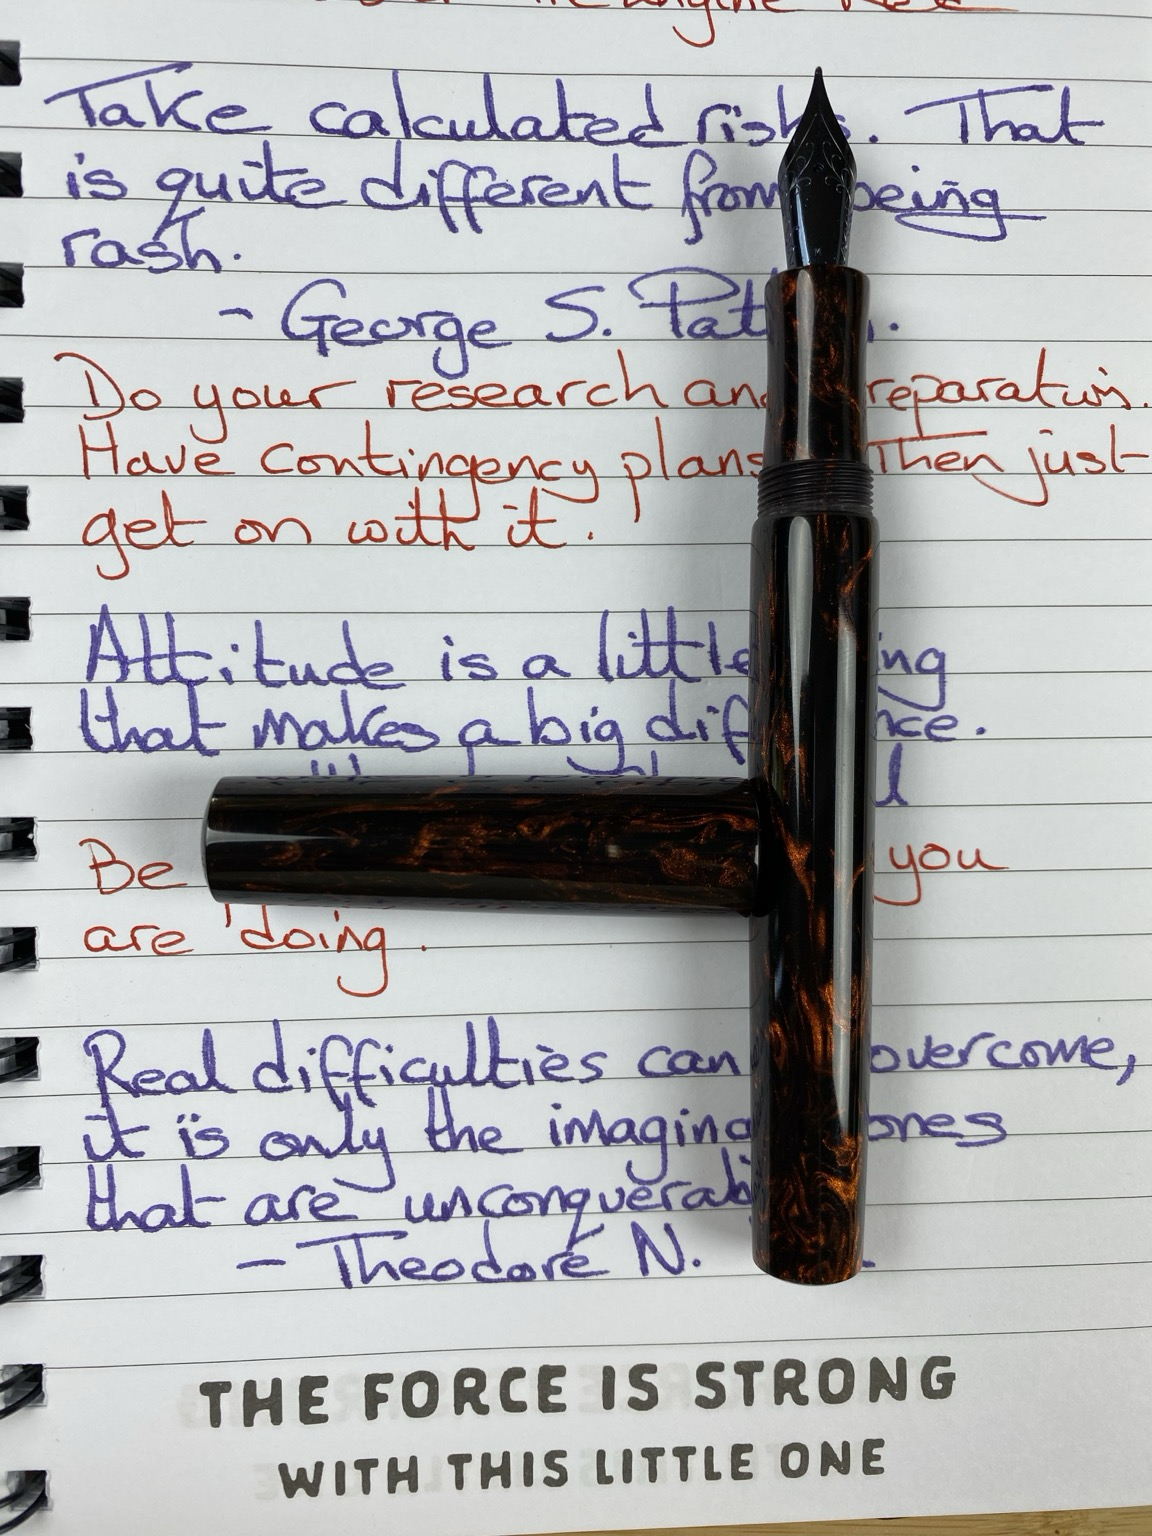 Take calculated risks. That
is quite different from being
rash.
- George S.
Do your research
Have contingency plans Then just
get on with it.
Attitude is a little
that makes a big
Be you
are doing.
Real difficulties can overcome,
it is only the ones
that are
- Theodore N.
THE FORCE IS STRONG
WITH THIS LITTLE ONE